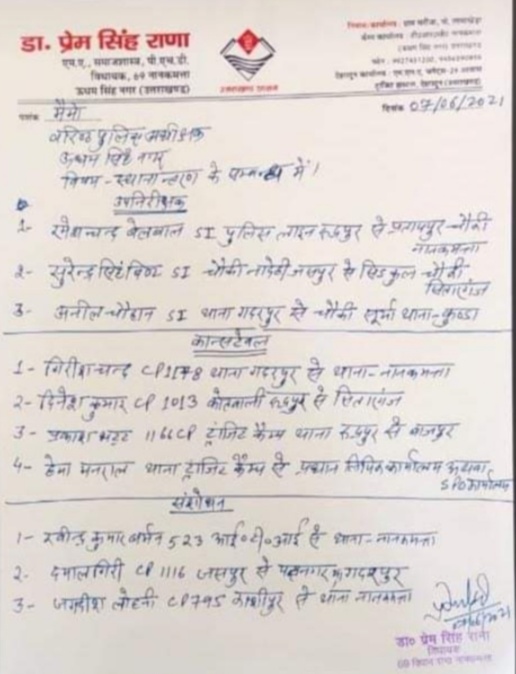 डा. प्रेम सिंह राणा
एम.ए., समाजशास्त्र, पी.एच.डी.
विधायक, 69 नानकमत्ता
ऊधम सिंह नगर (उत्तराखण्ड)
उत्तराखण्ड शासन
दिनांक 07/06/2021
पत्रांक मैमो
वरिष्ठ पुलिस अधीक्षक
ऊधम सिंह नगर
विषय - स्थानान्तरण के सम्बन्ध में।
उपनिरीक्षक
1- रमेश चन्द्र बेलवाल SI पुलिस लाइन रुद्रपुर से प्रतापपुर चौकी
नानकमत्ता
2- सुरेन्द्र सिंह बिष्ट SI चौकी नादेही जसपुर से सिडकुल चौकी
सितारगंज
3- अनील चौहान SI थाना गदरपुर से चौकी सूर्या थाना-कुण्डा
कान्सटेबल
1- गिरीश चन्द्र CP1178 थाना गदरपुर से थाना-नानकमत्ता
2- दिनेश कुमार CP 1013 कोतवाली रुद्रपुर से सितारगंज
3- प्रकाश भट्ट 1166CP ट्रांजिट कैम्प थाना रुद्रपुर से बाजपुर
4- हेमा मनराल थाना ट्रांजिट कैम्प से प्रधान लिपिक कार्यालय अथवा
SPO कार्यालय
संशोधन
1- रवीन्द्र कुमार बर्मन 523 आई०टी०आई से थाना-नानकमत्ता
2- दयाल गिरी CP 1116 जसपुर से पन्तनगर, गदरपुर
3- जगदीश लोहनी CP795 काशीपुर से थाना नानकमत्ता
डा० प्रेम सिंह राना
विधायक